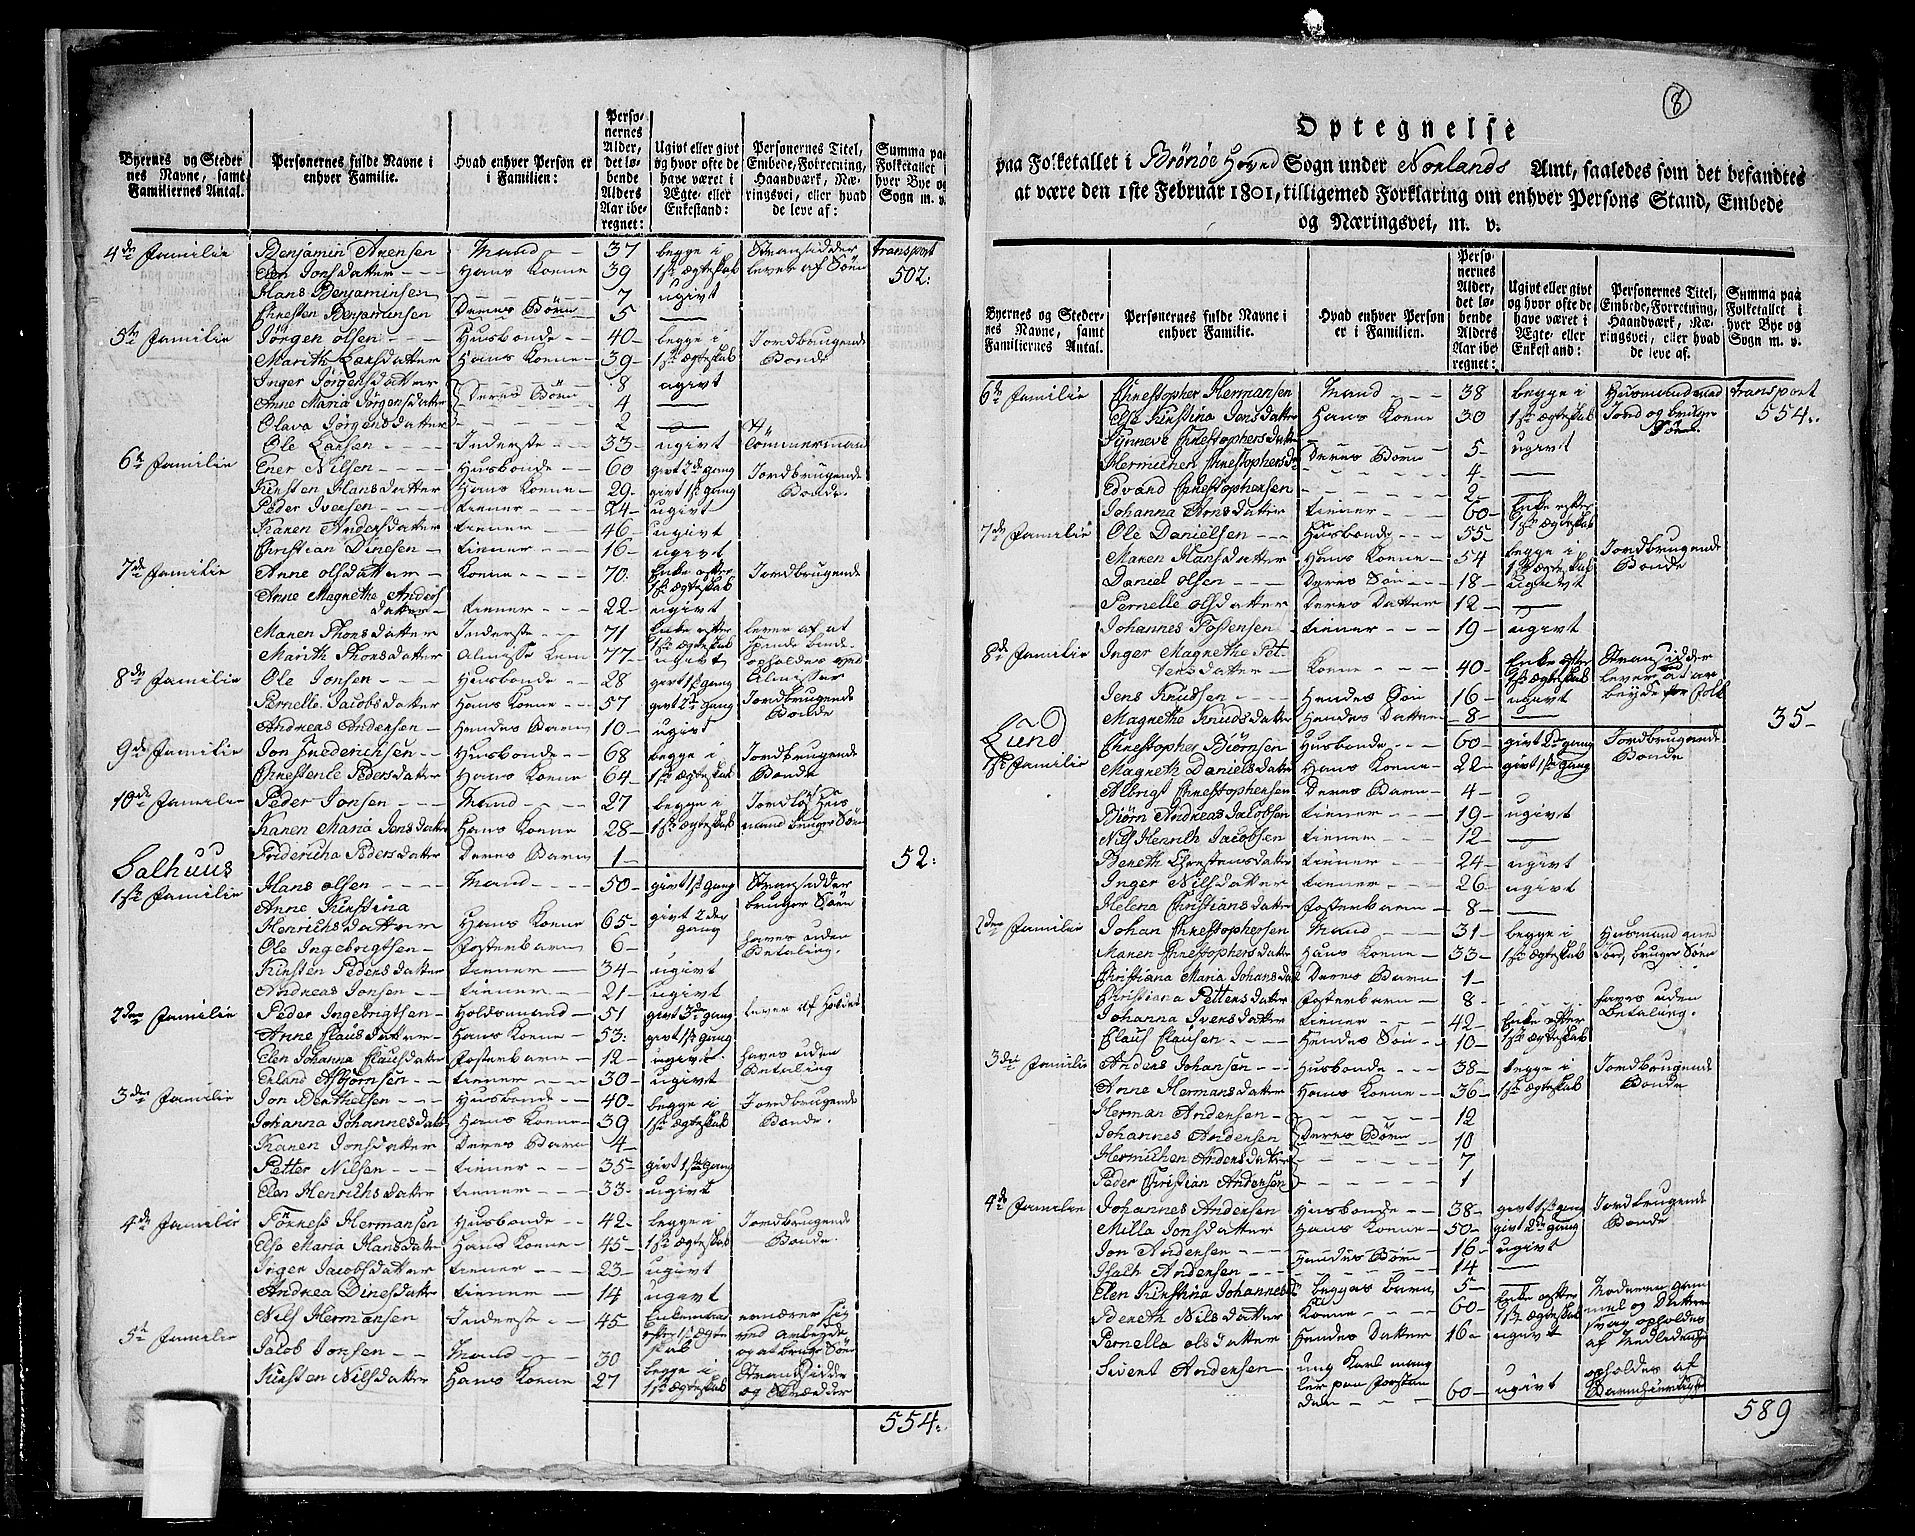 Byernes og Steder nes Navne, samt Familiernes Antal.
Personernes fulde Navne i enhver Familie.
Hvad enhver Person er i Familien:
Personernes Alder, det løbende Alders Aar iberegnet:
Ugivt eller givt og hvor ofte de have været i Ægte- eller Enkestand:
Personernes Titel, Embede, Forretning, Haandværk, Næringsvei, eller hvad de leve af:
Summa paa Folketallet i hver Bye og Sogn m. v.
4de Familie Benjamin Arensen Mand 37 begge i Stransidder transport
Elen Jonsdatter Hans Konne 39 1ste ægteskab lever af Søen 502:
Hans Benjaminsen 7 ugivt
Chresten Benjaminsen Deres Børn 5
5te Familie Jørgen Olsen Husbonde 40 begge i Jordbrugende
Marith Larsdatter Hans Konne 39 1ste ægteskab Bonde
Inger Jørgensdatter 8 ugivt
Anne Maria Jørgensdatter Deres Børn 4
Olava Jørgensdatter 2
Ole Larsen Inderste 33 ugivt Tømmermand
6te Familie Ener Nilsen Husbonde 60 givt 2de gang Jordbrugende
Kirsten Hansdatter Hans Konne 29 givt 1ste gang Bonde.
Peder Iversen tiener 24 ugivt
Karen Andersdatter tiener 46 ugivt
Christian Dinesen tiener 16 ugivt
7de Familie Anne Olsdatter Konne 70 Enke efter Jordbrugende
1ste ægteskab
Anne Magnethe Anders
datter tiener 22 ugivt
Maren Thonsdatter Inderste 71 Enke efter lever af at
Marith Thonsdatter Almisse Lem 77 1ste ægteskab ugivt spinde opholdes ved
8de Familie Ole Jonsen Husbonde 28 givt 1ste gang Almisser
Pernelle Jacobsdatter Hans Konne 57 givt 2de gang Jordbrugende
Andreas Andersen Hendes Barn 10 ugivt Bonde
9de Familie Jon Friderichsen Husbonde 68 begge i Jordbrugende
Chrestenle Pedersdatter Hans Konne 64 1ste ægteskab Bonde
10de Familie Peder Jonsen Mand 27 begge i Jordløs Huus
Karen Maria Jensdatter Hans Konne 28 1ste ægteskab mand bruger Søen
Fridericha Pedersdatter Deres Barn 1 52:
Salhuus
1ste Familie Hans Olsen Mand 50 givt 1ste gang Stransidder
Anne Kirstina bruger Søen
Henrichsdatter Hans Konne 65 givt 2de gang
Ole Ingebrigtsen Fosterbarn 6 haves uden
Kirsten Pedersdatter tiener 34 ugivt Betaling.
Andreas Jonsen tiener 21 ugivt
2den Familie Peder Ingebrigtsen Holdsmand 51 givt 3de gang lever af Holdet
Anne Clausdatter Hans Konne 53 givt 1ste gang
Elen Johanna Clausdatter Fosterbarn 12 ugivt haves uden
Erland Asbjørnsen tiener 30 ugivt Betaling
3die Familie Jon Berthelsen Husbonde 40 begge i Jordbrugende
Johanna Johannesdatter Hans Konne 39 1ste ægteskab Bonde.
Karen Jonsdatter Deres Barn 4
Petter Nilsen tiener 35 givt 1ste gang
Elen Henrichsdatter tiener 33 ugivt
4de Familie Fønness Hermansen Husbonde 42 begge i Jordbrugende
Else Maria Hansdatter Hans Konne 45 1ste ægteskab Bonde.
Inger Jacobsdatter tiener 23 ugivt
Andrea Dinesdatter tiener 14 ugivt
Nils Hermansen Inderste 45 Enkemand ernærer sig
efter 1ste ægteskab ved arbeyde,
5te Familie Jacob Jonsen Mand 30 og at bruge Søen
Kirsten Nilsdatter Hans Konne 27 begge i 1ste ægteskab Strandsidder og
554:
8
Optegnelse
paa Folketallet i Brønøe Hoved Sogn under Norlands Amt, saaledes som det befandtes
at være den 1ste Februar 1801, tilligemed Forklaring om enhver Persons Stand, Embede
og Næringsvei, m. v.
Byernes og Stedernes Navne, samt Familiernes Antal.
Personernes fulde Navne i enhver Familie.
Hvad enhver Person er i Familien.
Personernes Alder, det løbende Alders Aar iberegnet:
Ugivt eller givt og hvor ofte de have været i Ægte- eller Enkestand:
Personernes Titel, Embede, Forretning, Haandværk, Næringsvei, eller hvad de leve af.
Summa paa Folketallet i hver Bye og Sogn m. v.
6te Familie Chrestopher Hermansen Mand 38 begge i Husmand med transport
Else Kirstina Jonsdatter Hans Konne 30 1ste ægteskab Jord og bruger Søen 554:
Synneve Chrestophersdatter 5 ugivt
Hermichen Chrestophersd. Deres Børn 4
Edvard Chrestophersen 2
Johanna Arnsdatter tiener 60 Enke efter 1ste ægteskab
7de Familie Ole Danielsen Husbonde 55 begge i Jordbrugende
Maren Hansdatter Hans Konne 54 1ste ægteskab Bonde
Daniel Olsen Deres Søn 18 ugivt
Pernelle Olsdatter Deres Datter 12
Johannes Tostensen tiener 19 ugivt
8de Familie Inger Magnethe Pet-
tersdatter Konne 40 Enke efter ægteskab Stransidder lever at ar
Jens Knudsen Hendes Søn 16 ugivt beyde for Folk
Magnethe Knudsdatter Hendes Datter 8 35
Lund
1ste Familie Chrestopher Biørnsen Husbonde 60 givt 2de gang Jordbrugende
Magneth Danielsdatter Hans Konne 22 givt 1ste gang Bonde
Albrigt Chrestophersen Deres Barn 4
Biørn Andreas Jacobsen tiener 19 ugivt
Nils Henrich Jacobsen tiener 12
Bereth Christensdatter tiener 24 ugivt
Inger Nilsdatter tiener 26 ugivt
Helena Christiansdatter Fosterbarn 8
2den Familie Johan Chrestophersen Mand 31 begge i Husmand
Maren Chrestophersdatter Hans Konne 33 1ste ægteskab Jord, bruger Søen
Christiana Maria Johansdat Deres Barn 1
Christiana Pettersdatter Fosterbarn 8 haves uden
Johanna Iversdatter tiener 42 Enke efter Betaling.
Claus Clausen Hendes Søn 10 1ste ægteskab
3die Familie Anders Johansen Husbonde 38 begge i Jordbrugende
Anne Hermansdatter Hans Konne 36 1ste ægteskab Bonde
Herman Andersen 12
Johannes Andersen Deres Børn 10
Hermichen Andersdatter 7
Peder Christian Andersen 1
4de Familie Johannes Andersen Husbonde 38 givt 1ste gang Jordbrugende
Milla Jonsdatter Hans Konne 50 givt 2de gang Bonde
Jon Andersen Hendes Børn 16 ugivt
Isach Andersen 14
Elen Kirstina Johannesd. begges Barn 5 Moderen gam
Bereth Nilsdatter Konne 60 Enke efter 1ste ægteskab mel og Datteren
Pernella Olsdatter Hendes Datter 16 ugivt svag opholdes af
Sivert Andersen ung Karl mang opholdes af
ler paa Forstan
den 60 ugivt Barmhiertighed
589